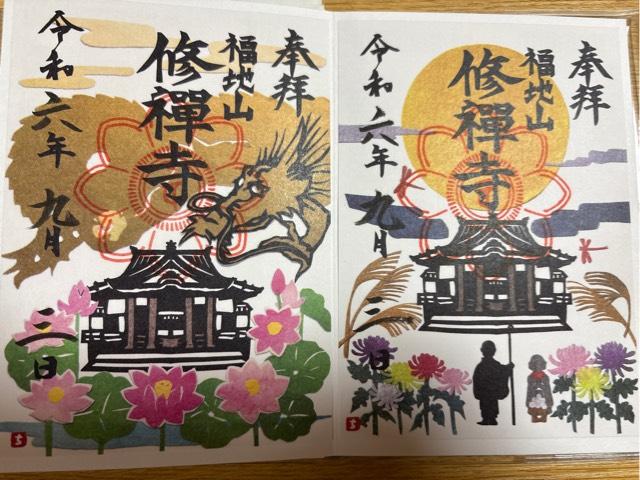 奉拝
福地山
修禅寺
令和六年九月
三日
奉拝
福地山
修禅寺
令和六年九月
三日